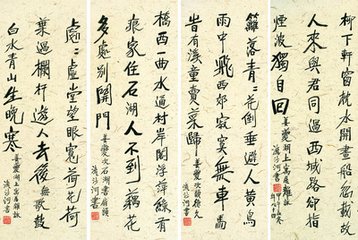 柳下軒窗枕水開畫船忽載故
人來與君同過西城路卻指
煙波獨自回
姜夔湖上寓居雜詠
籬落青〻花倒垂避人黃鳥
雨中飛西郊寂寞無車馬
旹有溪童賣菜歸
橋西一曲水通村岸閣浮萍綠有
痕家住石湖人不到藕花
多處別開門
姜夔次石湖書扇韻
處〻虛堂望眼寬荷花荷
葉過欄杆遊人去後無歌鼓
白水青山生晚寒
姜夔湖上寓居雜詠